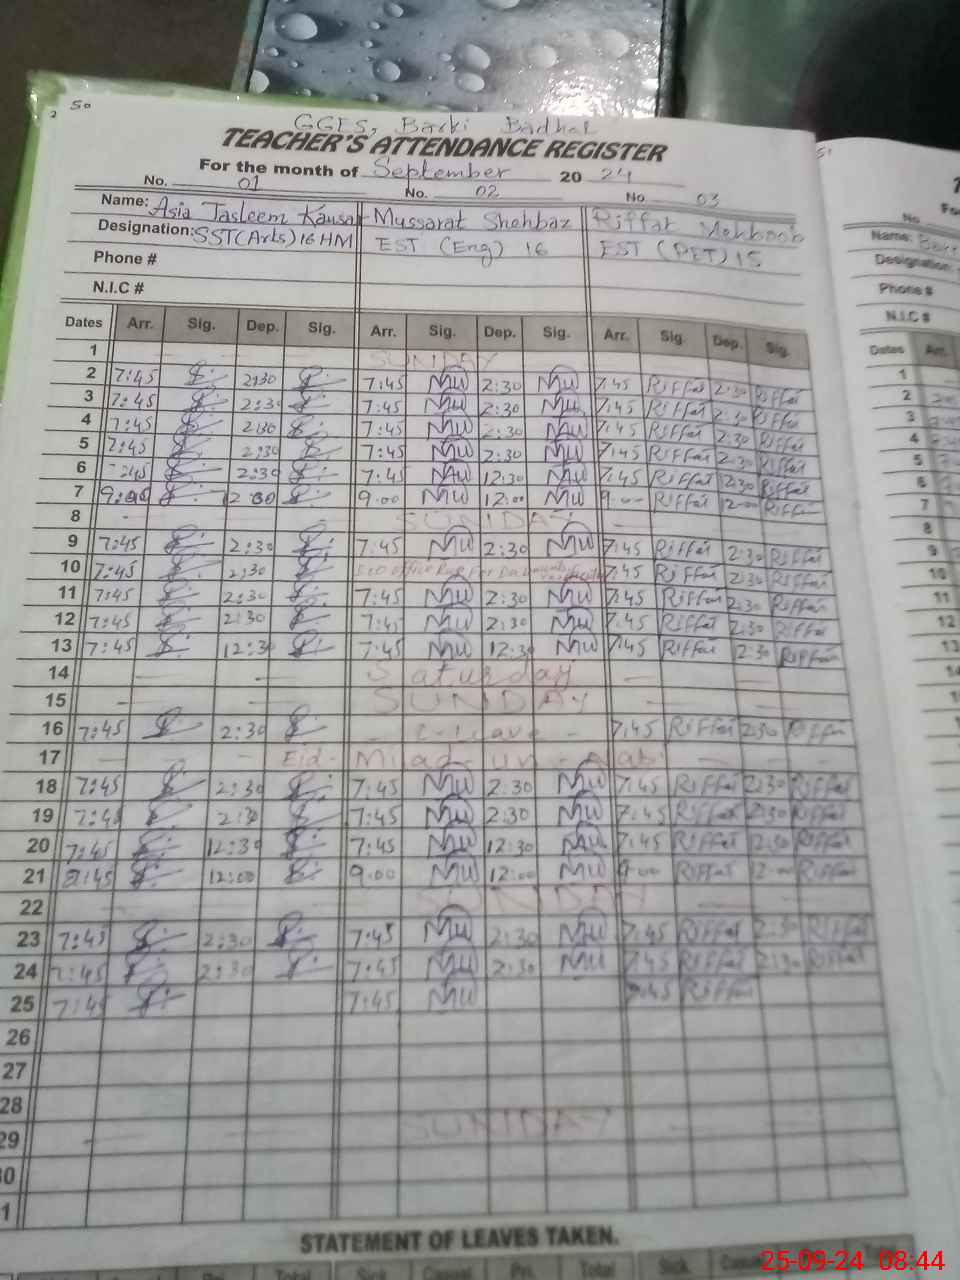 50
2
GGES, Barki Badhal
TEACHER'S ATTENDANCE REGISTER
For the month of September 2024
No. 01 No. 02 No. 03
Name: Asia Tasleem Kausar Mussarat Shehbaz Riffat Mehboob
Designation: SST(Arts) 16 HM EST (Eng) 16 EST (PET) 15
Phone #
N.I.C #
Dates Arr. Sig. Dep. Sig. Arr. Sig. Dep. Sig. Arr. Sig. Dep. Sig.
1 SUNDAY
2 7:45 2:30 7:45 MW 2:30 MW 7:45 Riffat 2:30 Riffat
3 7:45 2:30 7:45 MW 2:30 MW 7:45 Riffat 2:30 Riffat
4 7:45 2:30 7:45 MW 2:30 MW 7:45 Riffat 2:30 Riffat
5 7:45 2:30 7:45 MW 2:30 MW 7:45 Riffat 2:30 Riffat
6 7:45 2:30 7:45 MW 12:30 MW 7:45 Riffat 2:30 Riffat
7 9:00 12:00 9:00 MW 12:00 MW 9:00 Riffat 12:00 Riffat
8 SUNDAY
9 7:45 2:30 7:45 MW 2:30 MW 7:45 Riffat 2:30 Riffat
10 7:45 2:30 Office For 7:45 Riffat 2:30 Riffat
11 7:45 2:30 7:45 MW 2:30 MW 7:45 Riffat 2:30 Riffat
12 7:45 2:30 7:45 MW 2:30 MW 7:45 Riffat 2:30 Riffat
13 7:45 12:30 7:45 MW 12:30 MW 7:45 Riffat 2:30 Riffat
14 Saturday
15 SUNDAY
16 7:45 2:30 C-Leave 7:45 Riffat 2:30 Riffat
17 Eid-Milad-un-Nabi
18 7:45 2:30 7:45 MW 2:30 MW 7:45 Riffat 2:30 Riffat
19 7:45 2:30 7:45 MW 2:30 MW 7:45 Riffat 2:30 Riffat
20 7:45 12:30 7:45 MW 12:30 MW 7:45 Riffat 2:30 Riffat
21 8:45 12:00 9:00 MW 12:00 MW 9:00 Riffat 12:00 Riffat
22 SUNDAY
23 7:45 2:30 7:45 MW 2:30 MW 7:45 Riffat 2:30 Riffat
24 7:45 2:30 7:45 MW 2:30 MW 7:45 Riffat 2:30 Riffat
25 7:45 7:45 MW 7:45 Riffat
26
27
28
29 SUNDAY
30
STATEMENT OF LEAVES TAKEN.
Total Sick Casual Pri. Total Sick
51
No
Name:
Designation
Phone #
N.I.C #
Dates Arr.
1
2
3
4
5
6
7
8
9
10
11
12
13
14
15
16
25-09-24 08:44